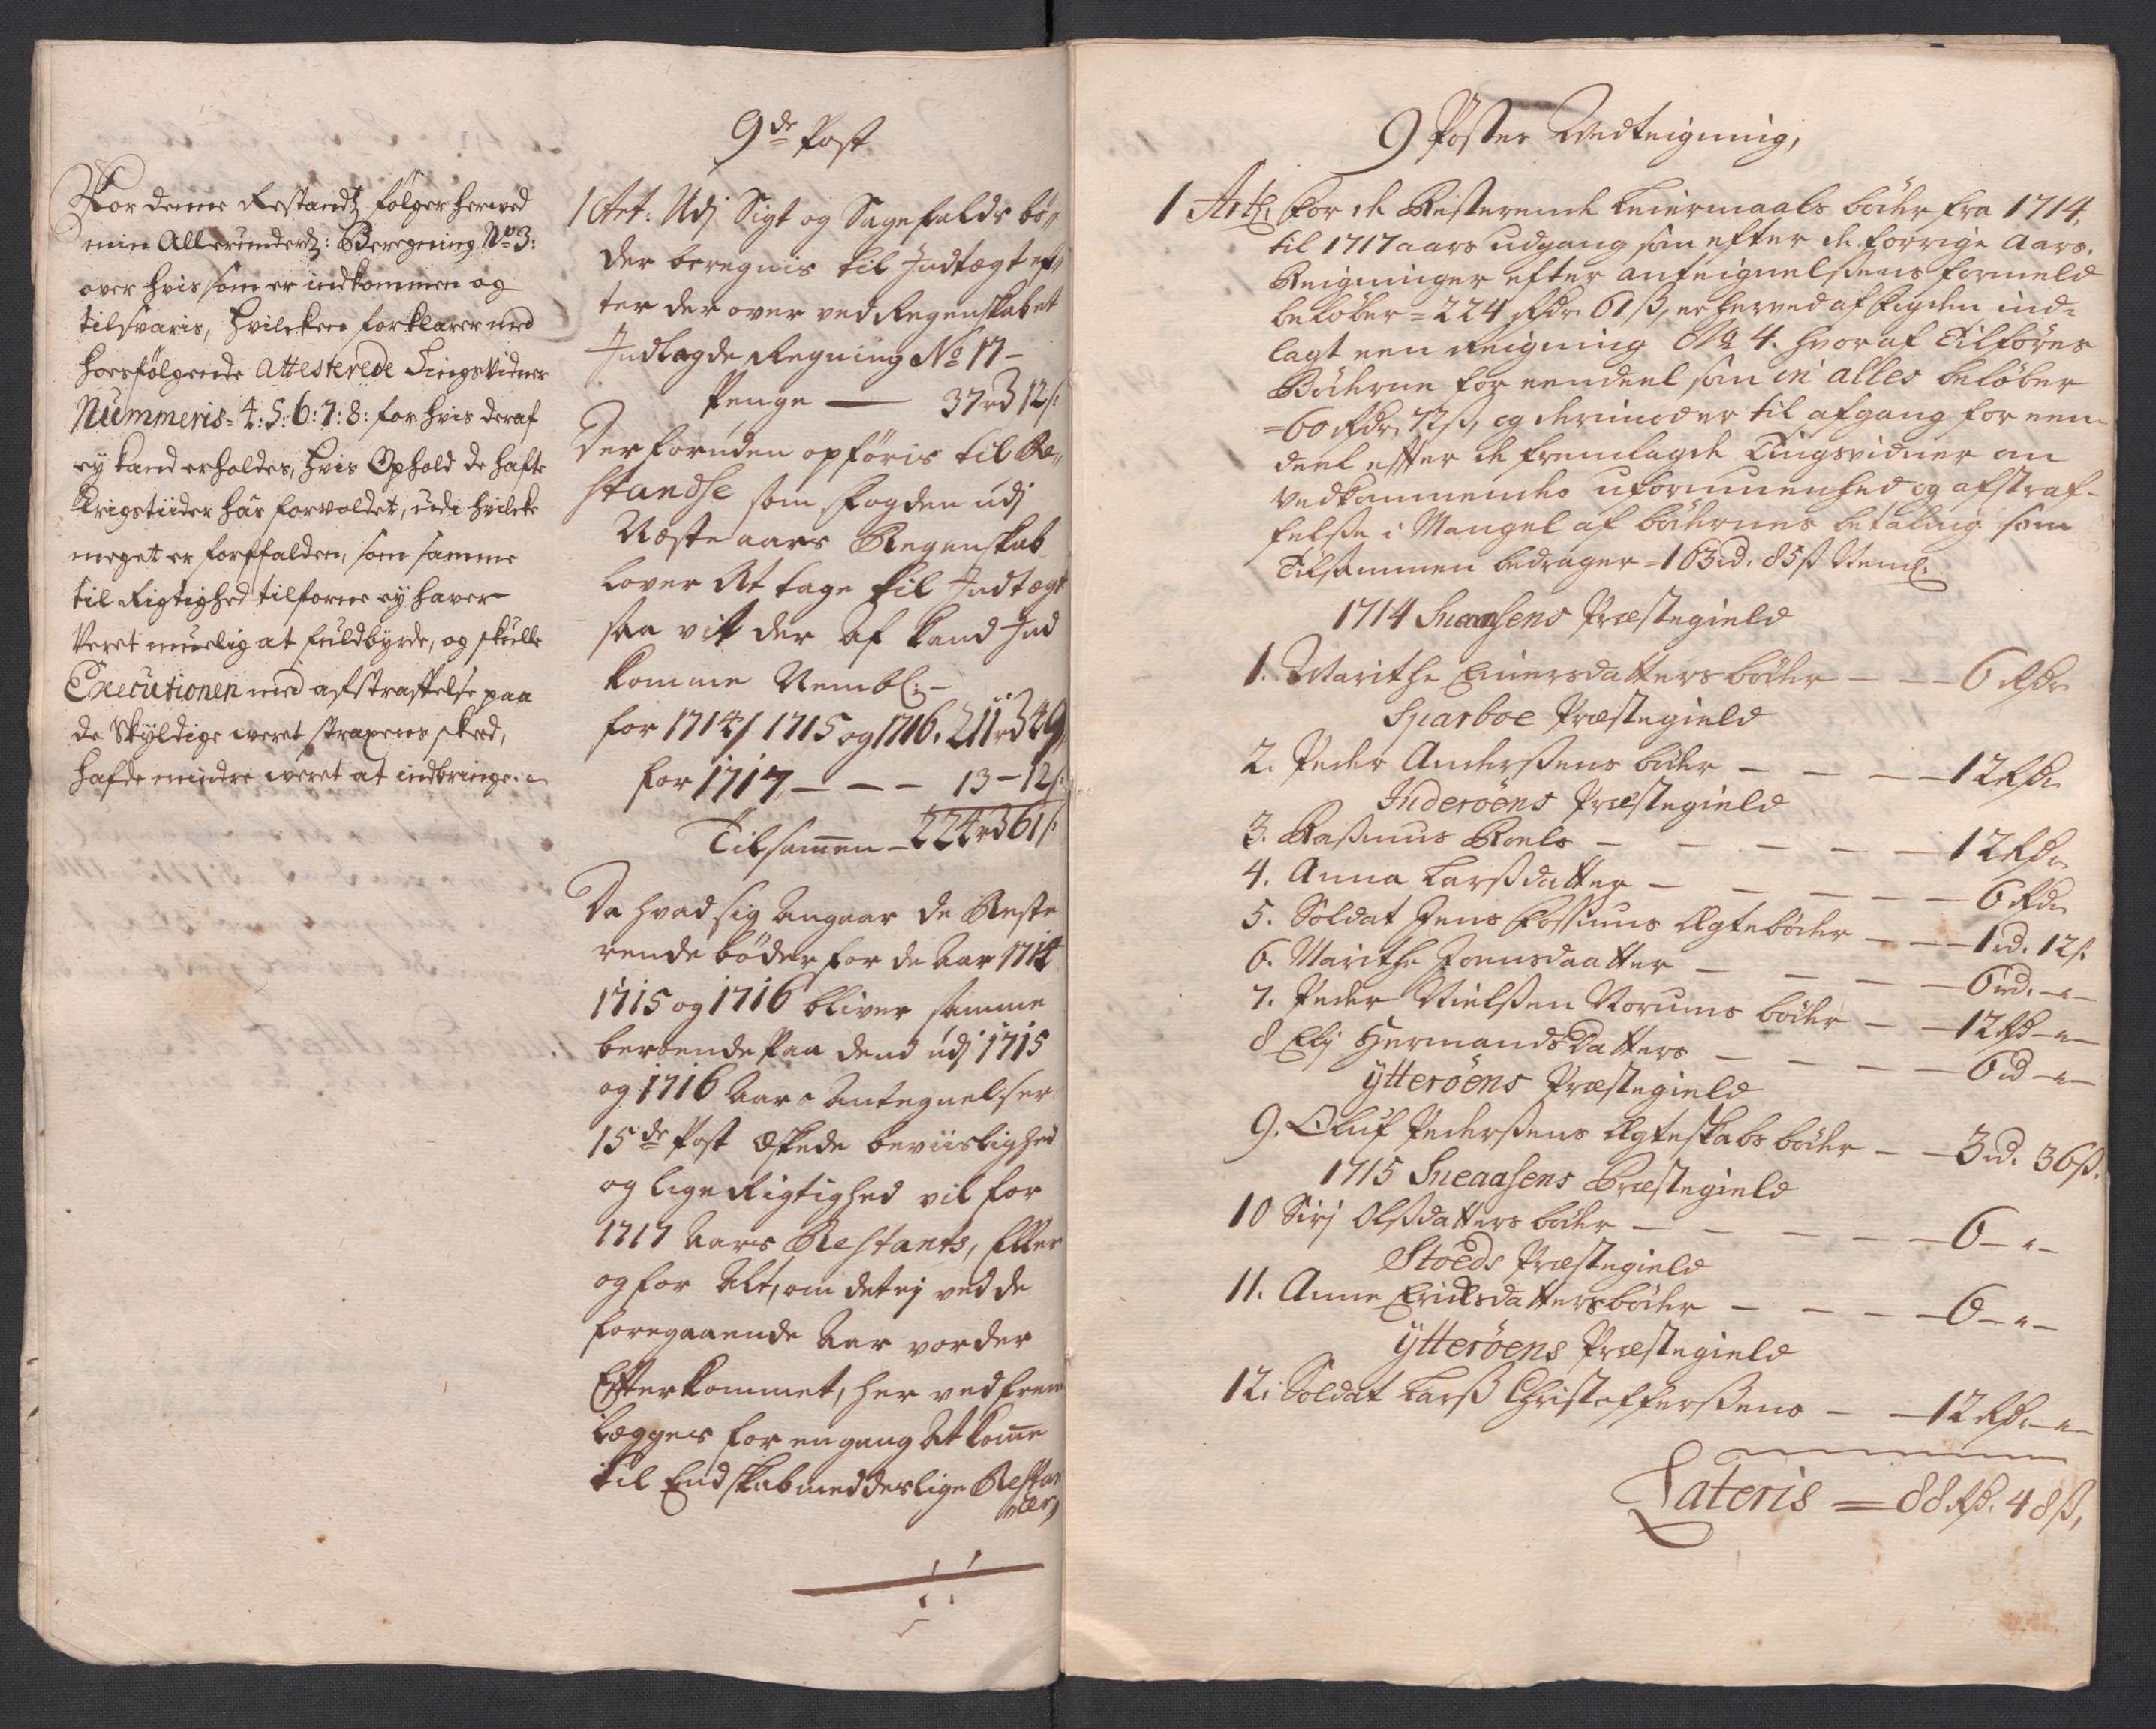 For denne Restandtz følger herved
min Allerunderdz: Beregning No 3:
over hvis som er indkommen og
tilsvaris, hvilken forklarer med
hoesfølgende Attesterede Tingsvidner
Nummeris= 4: 5: 6: 7: 8: for hvis deraf
ey kand erholdes, hvis Ophold de hafte
Krigstiider har forvoldet, udi hvilcke
meget er forfalden, som samme
til Rigtighed tilforne ey haver
veret muelig at fuldbyrde, og skulle
Executionen med afstraffelse paa
de Skyldige weret straxens skeed,
hafde mindre weret at indbringe.
9de Post
1 Art. Udj Sigt og Sagefalds bø„
der beregnis til Indtægt ef„
ter der over ved Regenskabet
Indlagde Regning No 17 –
Penge — 37 rd 12 s:
Der foruden opføris til Re„
standse som fogden udj
Næste aars Regenskab
lover At tage til Indtægt
saa vit der af kand Ind
komme Nembl: –
for 1714 / 1715 og 1716. 211 rd 49
for 1717, – – – 13 – 12 s:
Tilsamen – 224 rd 61 s:
Da hvad sig Angaar de Reste
rende bøder for de Aar 1714
1715 og 1716 bliver samme
beroende Paa dend udj 1715
og 1716 Aars Antegnelser
15de Post Æskede beviislighed
og lige Rigtighed vil for
1717 Aars Restants, Eller
og for Alt, om det ej ved de
foregaaende Aar vorder
Efterkommet, her ved frem
lægges for en gang At kome
til Endskab med deslige Restan
cer,
9 Postes Vedteigning,
1 Art: For de Resterende Leiermaals bøder fra 1714,
til 1717 aars udgang som efter de forrige Aars.
Reigninger efter anteignelsens formeld
beløber = 224 Rdr. 61 ß, er herved af fogden ind-
lagt een Reigning No 4. hvoraf Tilføres
Bøderne for eendeel som in alles beløber
= 60 Rdr. 72 ß, og derimoed er til afgang for een
deel efter de fremlagde Tingsvidner om
vedkommendes uformuenhed og afstraf-
felse i Mangel af bødernes betaling som
Tilsammen bedrager = 163 rd. 85 ß Neml:
1714 Sneaasens Præstegield
1. Marithe Einersdatters bøder – – – 6 Rdr.
Sparboe Præstegield
2. Peder Andersens bøder – – – – 12 Rdr.
Inderøens Præstegield
3. Rasmus Roels – – – – – 12 Rdr.
4. Anna Larsdatter – – – – – 6 Rdr.
5. Soldat Jens Fossums Ægtebøder – – – 1 rd. 12 s.
6. Marithe Joensdaatter – – – – – 6 rd. – „ –
7. Peder Nielsen Norums bøder – – – 12 Rd – „ –
8 Elj Hermands Datters – – – – – 6 rd – „ –
ytterøens Præstegield
9. Oluf Pedersens Ægteskabs bøder – – 3 rd. 36 ß.
1715 Sneaasens Præstegield
10 Sirj Olsdatters bøder – – – – – 6 – „ –
Stoeds Præstegield
11. Anne Ericksdatters bøder – – – – 6 – „ –
ytterøens Præstegield
12. Soldat Lars Christoffersens – – 12 Rdr. – „ –
Lateris = 88 Rd. 48 ß,